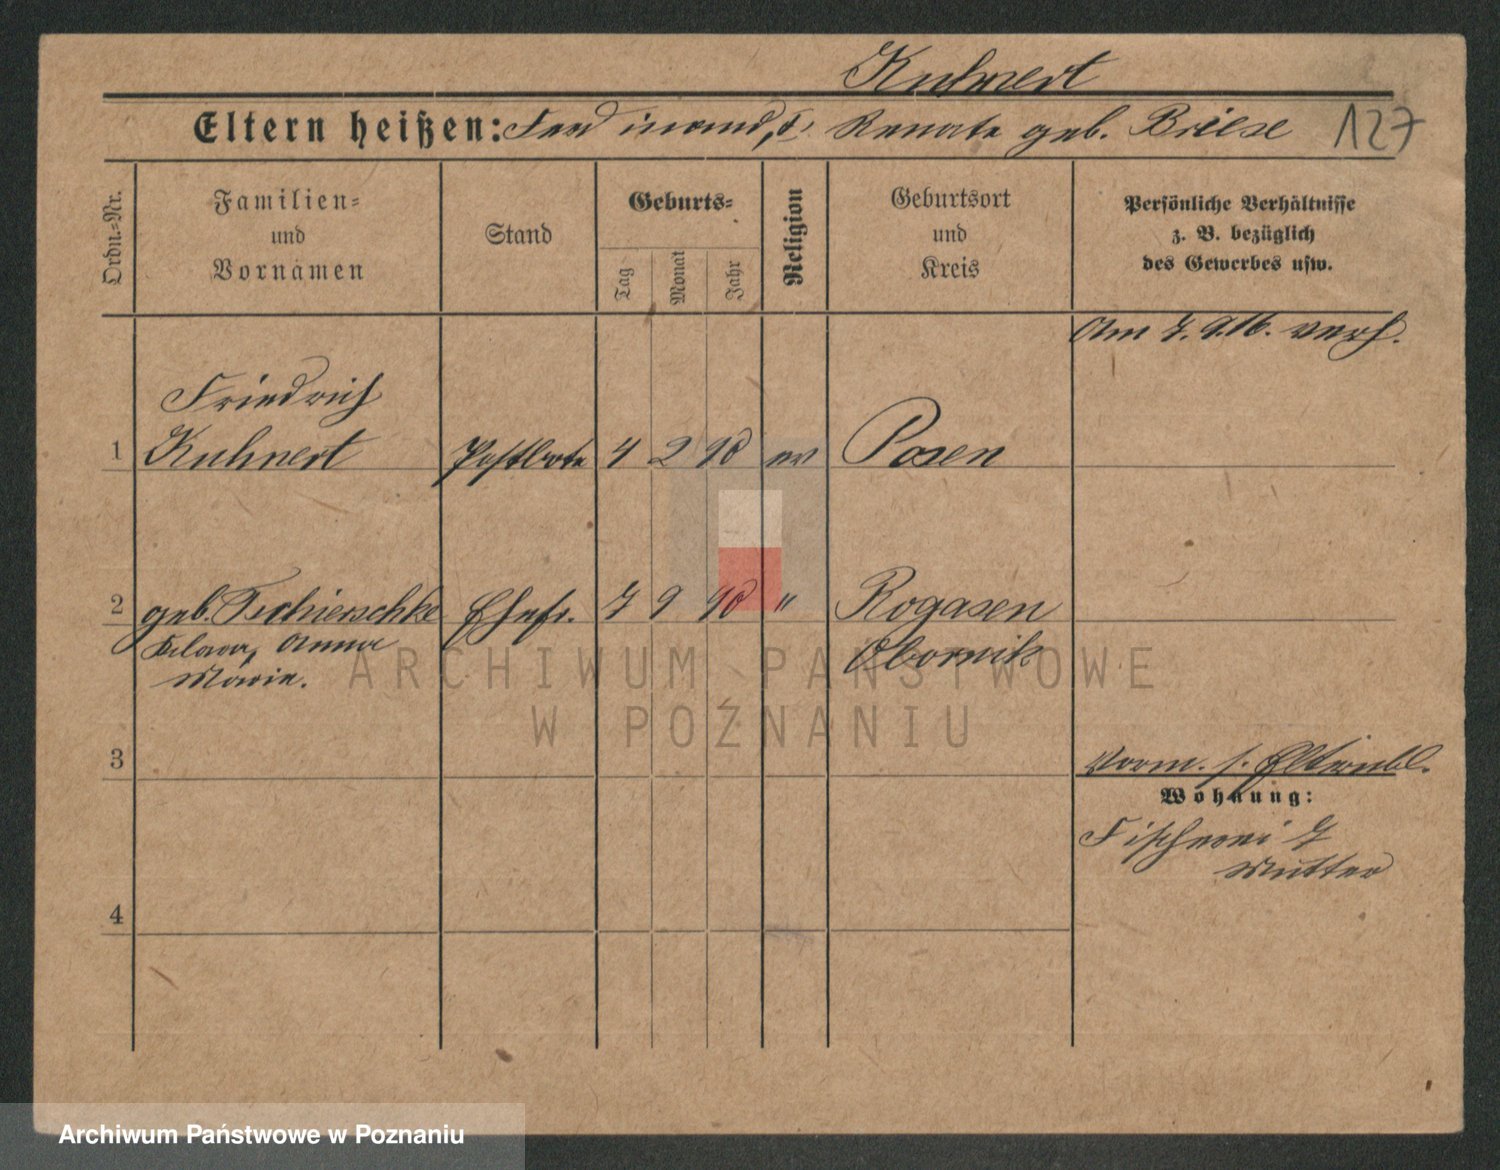 Kuhnert
Eltern heißen: Ferdinand, u. Renate geb. Briese 127
Ordn.-Nr.
Familien-
und
Vornamen
Stand
Geburts-
Tag
Monat
Jahr
Religion
Geburtsort
und
Kreis
Persönliche Verhältnisse
z. B. bezüglich
des Gewerbes usw.
Am 7. 9. 16. verh.
Friedrich
1 Kuhnert Postbote 4 2 90 ev Posen
2 geb. Tschierschke Ehefr. 7 9 90 " Rogasen
Anna Obornik
Marie.
ARCHIWUM PAŃSTWOWE
W POZNANIU
3
Vorm. s. Elternbl.
Wohnung:
Fischerei 7
Mutter
4
Archiwum Państwowe w Poznaniu